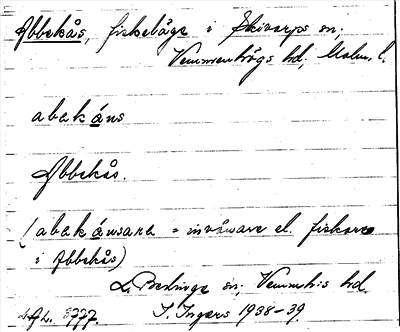 Abbekås, fiskeläge i Skivarps sn,
Vemmenhögs hd, Malm. l.
abekáns
Abbekås.
(abekánsara = invånare el. fiskare
i Abbekås)
L. Beddinge sn, Vemmh:s hd.
I. Ingers 1938-39.